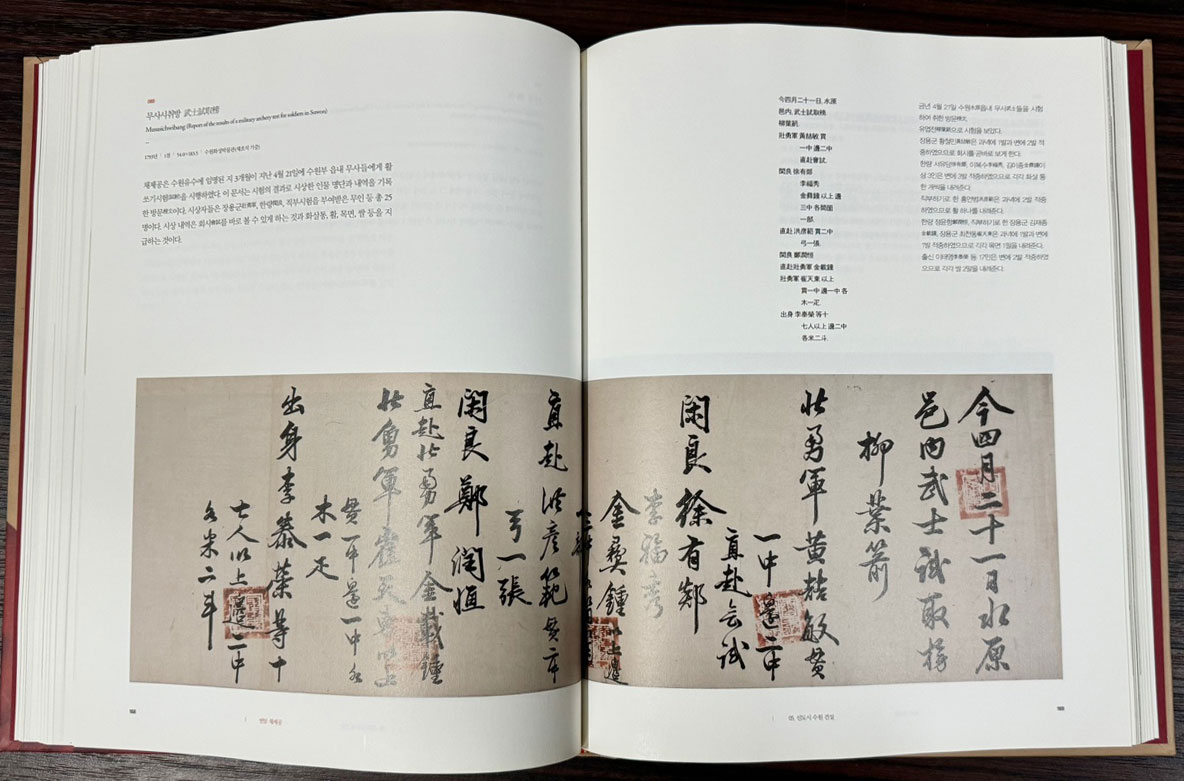 무사시취방 武士試取榜
Musasichwibang (Report of the results of a military archery test for soldiers in Suwon)
채제공은 수원유수에 임명된 지 5개월이 지난 4월 21일에 수원부 읍내 무사들에게 활
쏘기시험을 시행하였다. 이 문서는 시험의 결과로 시상한 인물 명단과 내역을 기록
한 방문이다. 시상자들은 장용군, 한량, 직부시험을 부여받은 무인 등 총 25
명이다. 시상 내역은 회시를 바로 볼 수 있게 하는 것과 화살통, 활, 목면, 쌀 등을 지
급하는 것이다.
今四月二十一日, 水原
邑內, 武士試取榜.
柳葉箭.
壯勇軍 黃喆敏 貫
一中 邊二中
直赴會試.
閑良 徐有郯
李福秀
金彛鍾 以上 邊
三中 各筒箇
一部.
直赴 洪彦範 貫二中
弓一張.
閑良 鄭潤恒
直赴壯勇軍 金載鍾
壯勇軍 崔天東 以上
貫一中 邊一中 各
木一疋.
出身 李泰榮 等十
七人以上 邊二中
各米二斗.
금년 4월 21일 수원 읍내 무사들을 시험
하여 취한 방문.
유엽전으로 시험을 보았다.
장용군 황철민은 과녁에 1발과 변에 2발 적
중하였으므로 회시를 곧바로 보게 한다.
한량 서유담, 이복수, 김이종이
상 3인은 변에 3발 적중하였으므로 각각 화살 통
한 개씩을 내려준다.
직부하기로 한 홍언범은 과녁에 2발 적중
하였으므로 활 하나를 내려준다.
한량 정윤항, 직부하기로 한 장용군 김재종
, 장용군 최천동은 과녁에 1발과 변에
1발 적중하였으므로 각각 목면 1필을 내려준다.
출신 이태영 등 17인은 변에 2발 적중하였
으므로 각각 쌀 2말을 내려준다.
今四月二十一日水原
邑內武士試取榜
柳葉箭
壯勇軍黃喆敏貫
一中邊二中
直赴会試
閑良徐有郯
李福秀
金彛鍾以上邊
直赴洪彦範貫二中
弓一張
閑良鄭潤恒
直赴壯勇軍金載鍾
壯勇軍崔天東以上
貫一中邊一中各
木一疋
出身李泰榮等十
七人以上邊二中
各米二斗
번암 채제공